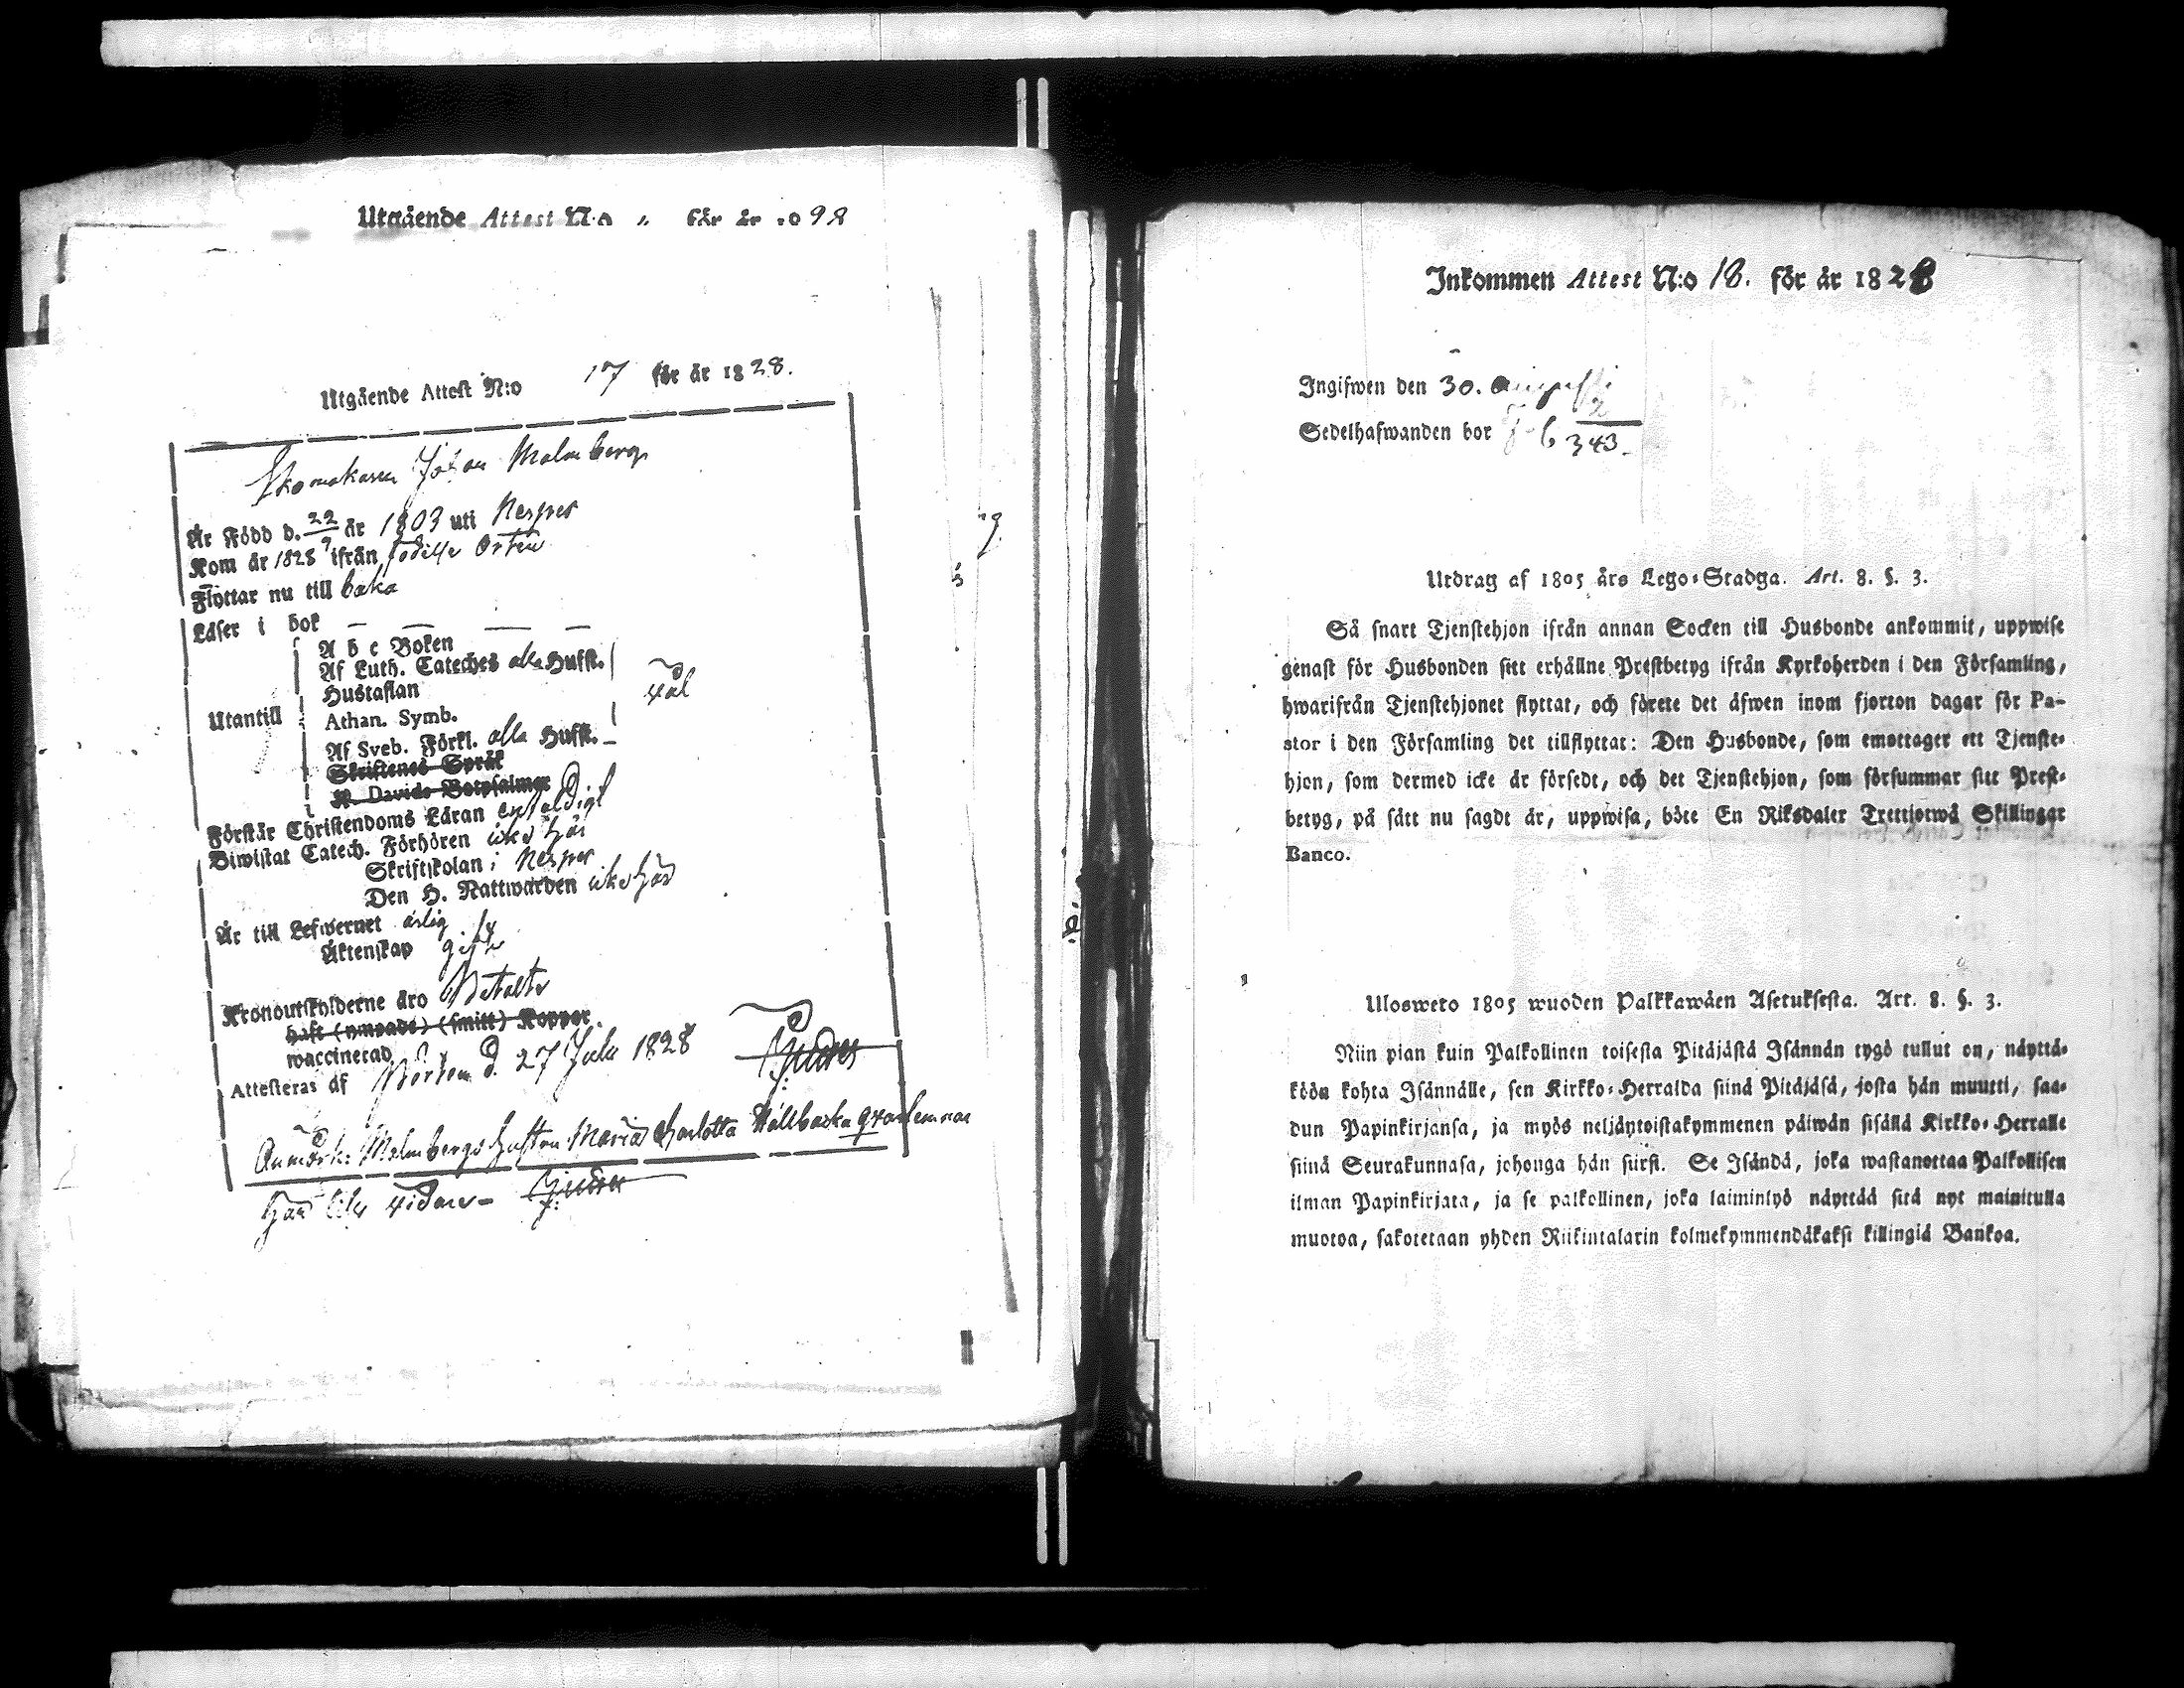 Utgående Attest N:o " för år 1098
Utgående Attest N:o 17 för år 1828.
Skomakaren Johan Malmberg
Är Född d. 22/9 år 1803 uti Nerpes
Kom år 1828 ifrån födelse Orten
Flyttar nu till baka
Läser i bok — — — —
A b c Boken
Af Luth. Cateches alla Hufst.
Hustaflan
väl
Utantill
Athan. Symb.
Af Sveb. Förkl. alla Hufst.
Skriftenes Språk
K. Davids Botpsalmer
Förstår Christendoms Läran enfaldigt
Biwistat Catech. Förhören icke här
Skriftskolan i Nerpes
Den H. Nattwarden icke här
Är till Lefwernet ärlig
Äktenskap gift
Kronoutskylderne äro Betalte
haft (ympade) (smitt) Koppor.
waccinerad
Attesteras af Mörtom d. 27 Julii 1828
Anmärk: Malmbergs hustru Maria Charlotta Hällbacka qvarlemnar
här tills vidare —
Inkommen Attest N:o 18. för år 1828
Ingifwen den 30. Augusti
Sedelhafwanden bor 343.
Utdrag af 1805 års Lego-Stadga. Art. 8. §. 3.
Så snart Tjenstehjon ifrån annan Socken till Husbonde ankommit, uppwise
genast för Husbonden sitt erhållne Prestbetyg ifrån Kyrkoherden i den Församling,
hwarifrån Tjenstehjonet flyttat, och förete det äfwen inom fjorton dagar för Pa-
stor i den Församling det tillflyttat: Den Husbonde, som emottager ett Tjenste-
hjon, som dermed icke är försedt, och det Tjenstehjon, som försummar sitt Prest-
betyg, på sätt nu sagdt är, uppwisa, böte En Riksdaler Trettiotwå Skillingar
Banco.
Ulosweto 1805 wuoden Palkkawäen Asetuksesta. Art. 8. §. 3.
Niin pian kuin Palkollinen toisesta Pitäjästä Isännän tygö tullut on, näyttä-
köön kohta Isännälle, sen Kirkko-Herralda siinä Pitäjäsä, josta hän muutti, saa-
dun Papinkirjansa, ja myös neljäntoistakymmenen päiwän sisällä Kirkko-Herralle
siinä Seurakunnasa, johonga hän siirsi. Se Isändä, joka wastanottaa Palkollisen
ilman Papinkirjata, ja se palkollinen, joka laiminlyö näyttää sitä nyt mainitulla
muotoa, sakotetaan yhden Riikintalarin kolmekymmendäkaksi killingiä Bankoa.